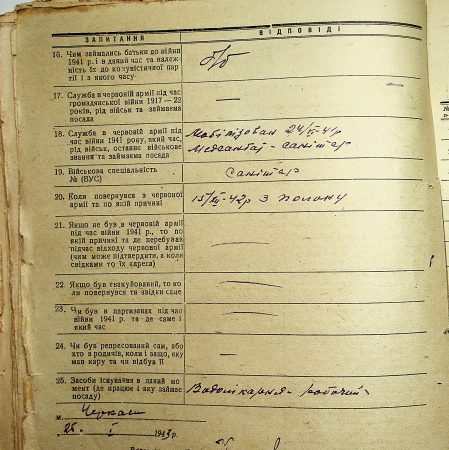 ЗАПИТАННЯ
ВІДПОВІДІ
16. Чим займались батьки до війни
1941 р. і в даний час та належ-
ність їх до комуністичної пар-
тії і з якого часу
б/б
17. Служба в червоній армії під час
громадянської війни 1917—22
років, рід військ та займаєма
посада
—
18. Служба в червоній армії під
час війни 1941 року, який час,
рід військ, останнє військове
звання та займаєма посада
Мобілізован 24/
Медсанбат - санітар
19. Військова спеціальність
№ (ВУС)
Санітар
20. Коли повернувся з червоної
армії та по якій причині
15/ -42р з полону
21. Якщо не був в червоній армії
під час війни 1941 р., то по
якій причині та де перебував
підчас відходу червоної армії
(чим може підтвердити, а коли
свідками то їх адреса)
—
22. Якщо був евакуйований, то ко-
ли повернувся та звідки саме
—
23. Чи був в партизанах під час
війни 1941 р. та де саме і
який час
—
24. Чи був репресований сам, або
хто з родичів, коли і защо, яку
мав кару та чи відбув її
—
25. Засоби існування в даний мо-
мент (де працює і яку займає
посаду)
робочий
м. Черкаси
25. I 1943 р.